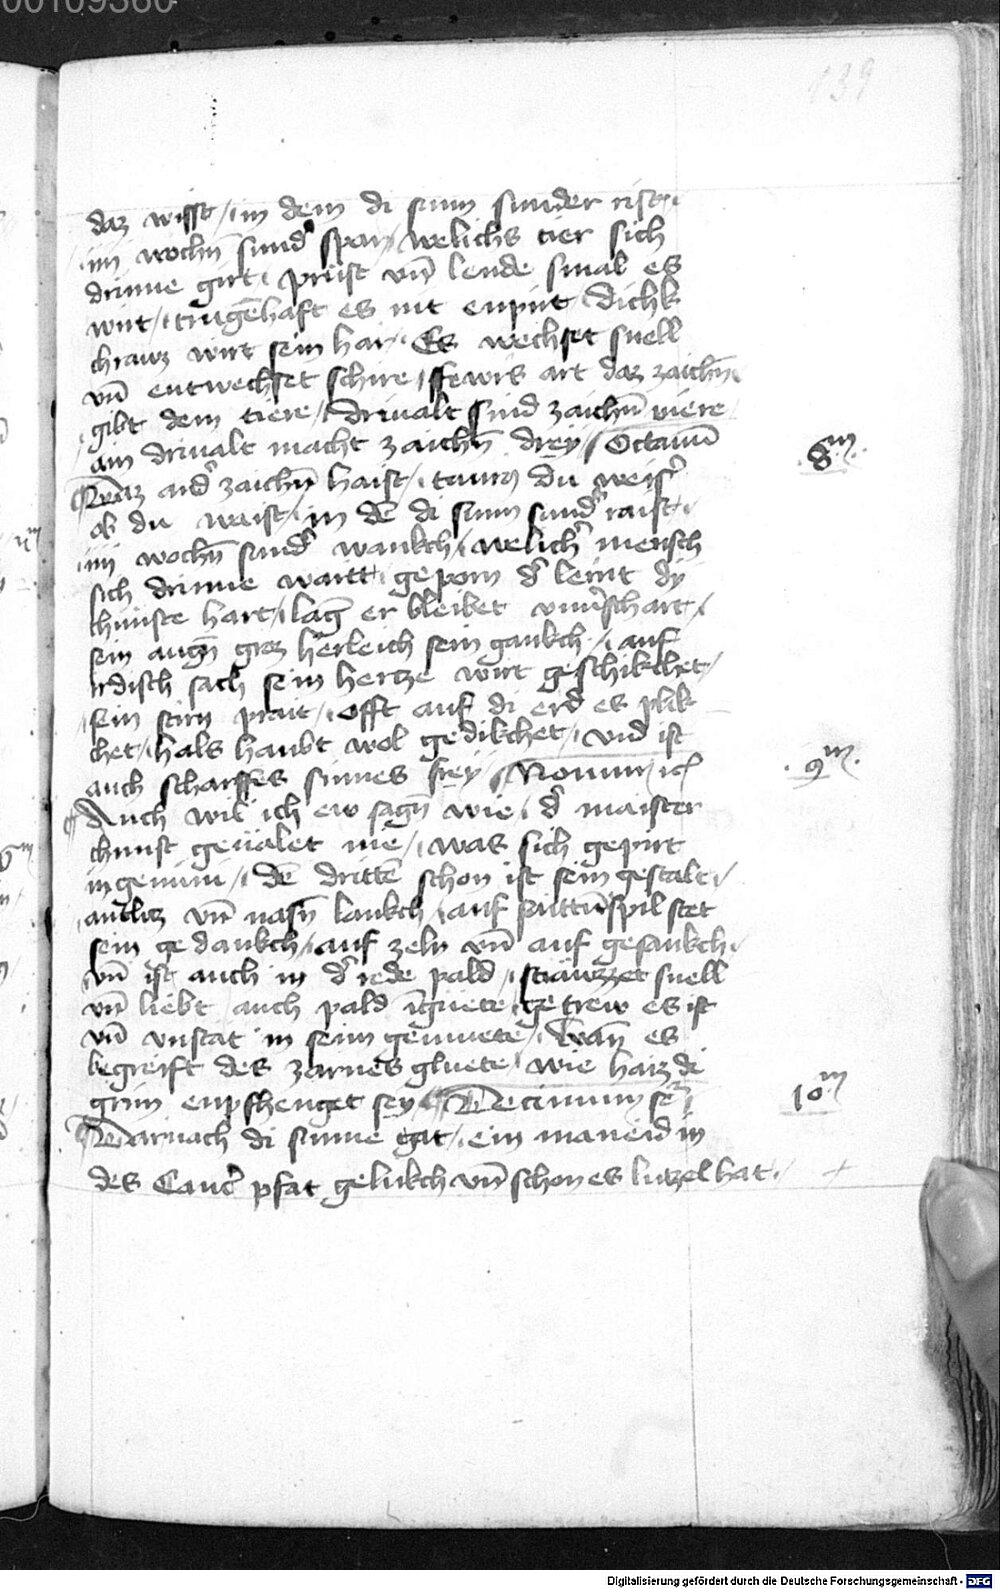 00109360
139
daz wisst / im dem di sunn sunder rist /
iiii wochn̄ sund' span / welichs tier sich
drinne girt / prust vn̄ lende smal es
wirt / trugēhaft es nit enpirt / Dichk
chrawz wirt sein har / Es wechset snell
vn̄ entwechset schire / fewrs art daz zaichn̄
gibt dem tiere / drivalt sind zaichn̄ viere
ain drivalt macht zaichn̄ drey / Octauū
8m
Daz and' zaichn̄ haist / taurus du weis'
ob du waist / in dē di sunn sund' raist /
iiii wochn̄ sund' wankch / welich' mensch
sich drinne wartt / geporn d' lernt dy
chunste hart / lāg er bleibet vnu'schart /
sein augn̄ groz herleich sein gankch / auf
irdisch sach sein hertze wirt geschikchet /
sein stirn prait / offt auf di erd es plik
chet / hals haubt wol gedikchet / vnd ist
auch scharffes sinnes frey / Nonum
9m
Auch wil ich ew sagn̄ wie / d' maister
chunst geualet nie / was sich gepirt
in gemini / dē drittē schon ist sein gestalt /
antlitz vn̄ nasn̄ lankch / auf puttn̄spil stet
sein gedankch / auf zeln vn̄ auf gesankch /
vn̄ ist auch in d' rede pald / snell
vn̄ liebt auch pald īguete / getrew es ist
vn̄ vnstat in seim gemuete / wan̄ es
begreift des zarnes gluete / wie haiz di
grim enpfhenget sey / Decimum
10m
Darnach di sunne gat / ein maneid in
des Canc' pfat gelukch vn̄ schon es lutzel hat /
Digitalisierung gefördert durch die Deutsche Forschungsgemeinschaft - DFG